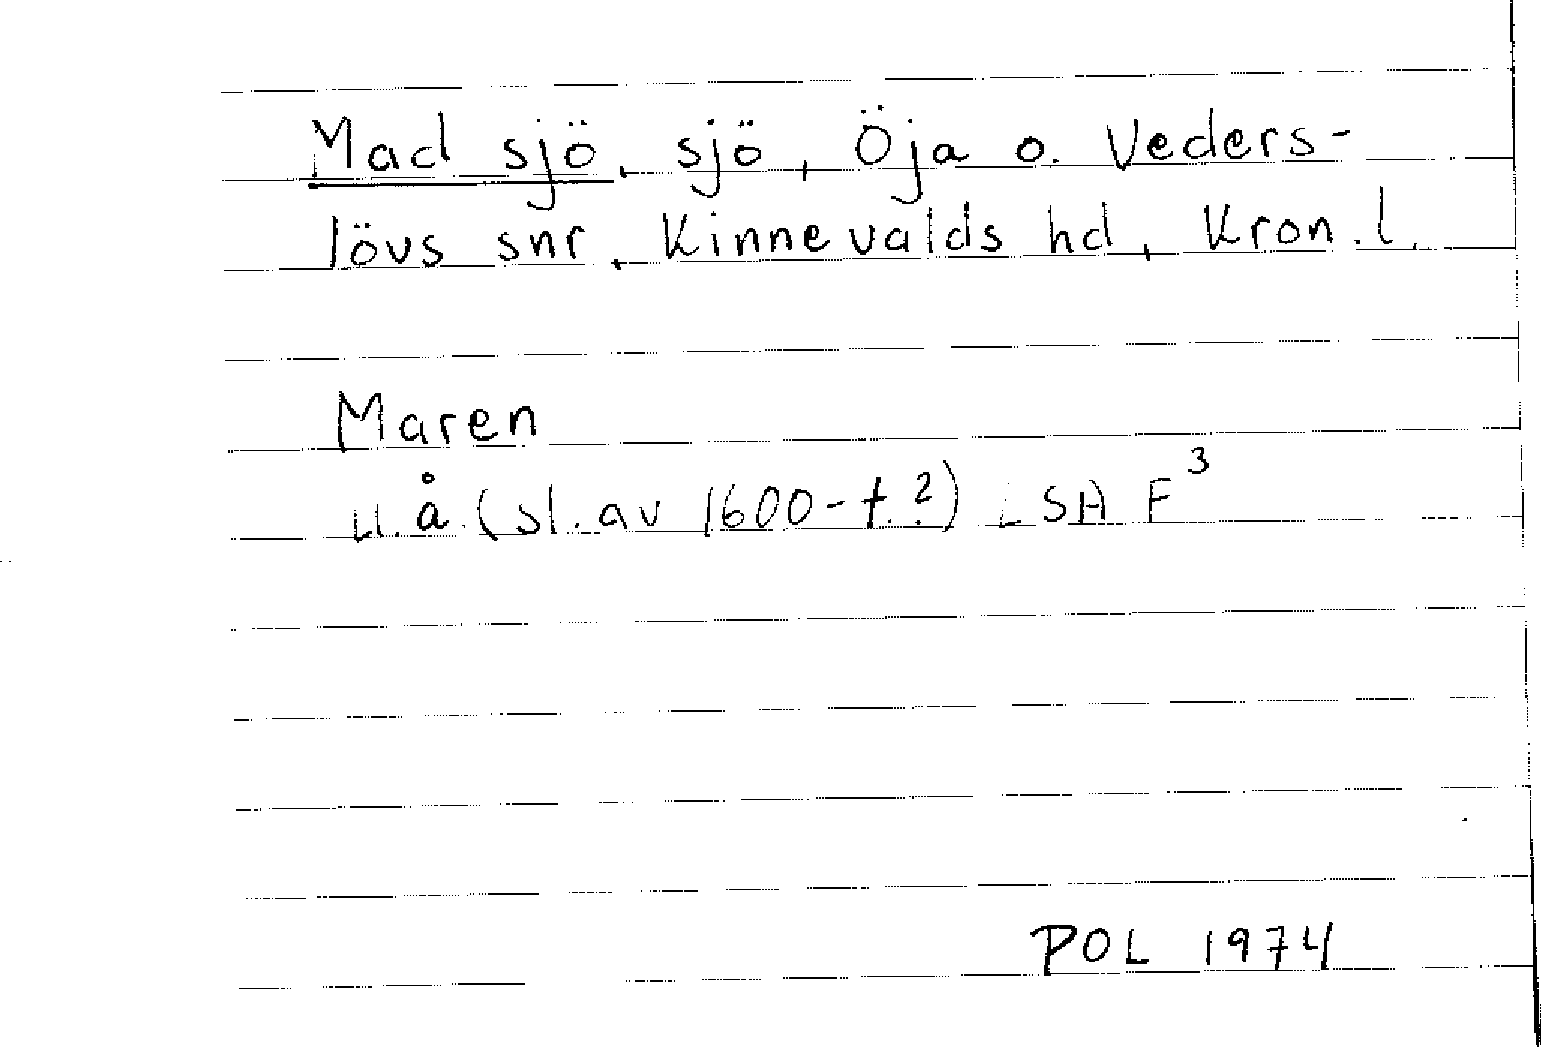 Mad sjö, sjö, Öja o. Veders-
lövs snr, Kinnevalds hd, Kron. l.
Maren
u. å. (sl. av 1600-t.?) LSA F³
POL 1974